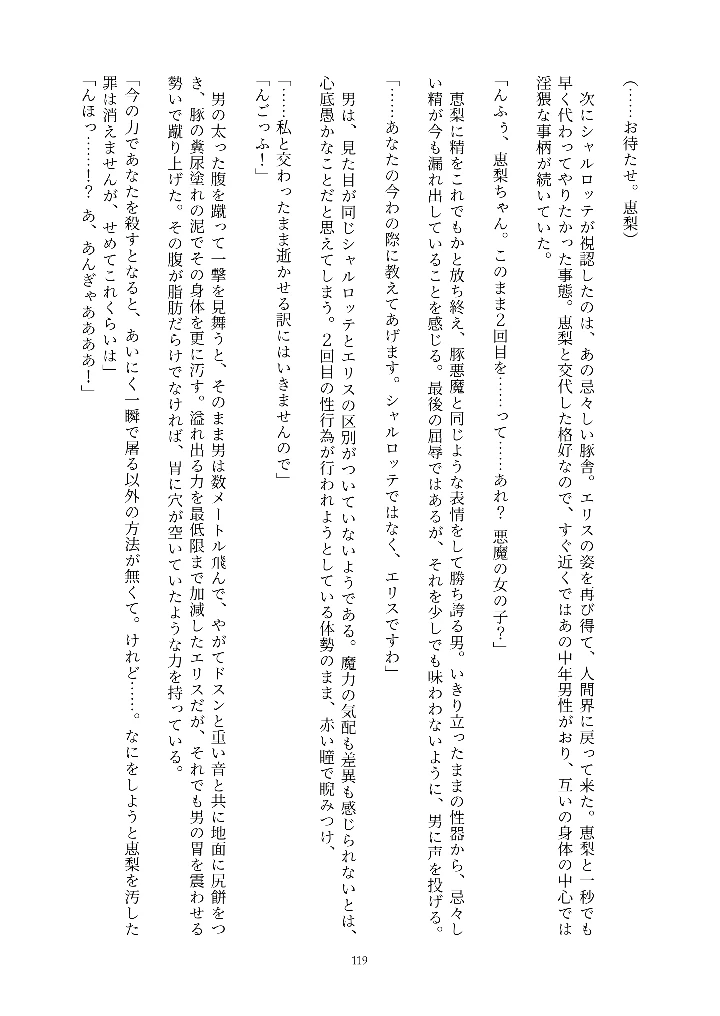 (……お待たせ。恵梨)
次にシャルロッテが視認したのは、あの忌々しい豚舎。エリスの姿を再び得て、人間界に戻って来た。恵梨と一秒でも
早く代わってやりたかった事態。恵梨と交代した格好なので、すぐ近くではあの中年男性がおり、互いの身体の中心では
淫猥な事柄が続いていた。
「んふぅ、恵梨ちゃん。このまま2回目を……って……あれ? 悪魔の女の子?」
恵梨に精をこれでもかと放ち終え、豚悪魔と同じような表情をして勝ち誇る男。いきり立ったままの性器から、忌々し
い精が今も漏れ出していることを感じる。最後の屈辱ではあるが、それを少しでも味わわないように、男に声を投げる。
「……あなたの今わの際に教えてあげます。シャルロッテではなく、エリスですわ」
男は、見た目が同じシャルロッテとエリスの区別がついていないようである。魔力の気配も差異も感じられないとは、
心底愚かなことだと思えてしまう。2回目の性行為が行われようとしている体勢のまま、赤い瞳で睨みつけ、
「……私と交わったまま逝かせる訳にはいきませんので」
「んごっふ!」
男の太った腹を蹴って一撃を見舞うと、そのまま男は数メートル飛んで、やがてドスンと重い音と共に地面に尻餅をつ
き、豚の糞尿塗れの泥でその身体を更に汚す。溢れ出る力を最低限まで加減したエリスだが、それでも男の胃を震わせる
勢いで蹴り上げた。その腹が脂肪だらけでなければ、胃に穴が空いていたような力を持っている。
「今の力であなたを殺すとなると、あいにく一瞬で屠る以外の方法が無くて。けれど……。なにをしようと恵梨を汚した
罪は消えませんが、せめてこれくらいは」
「んほっ……!? あ、あんぎゃああああ!」
119